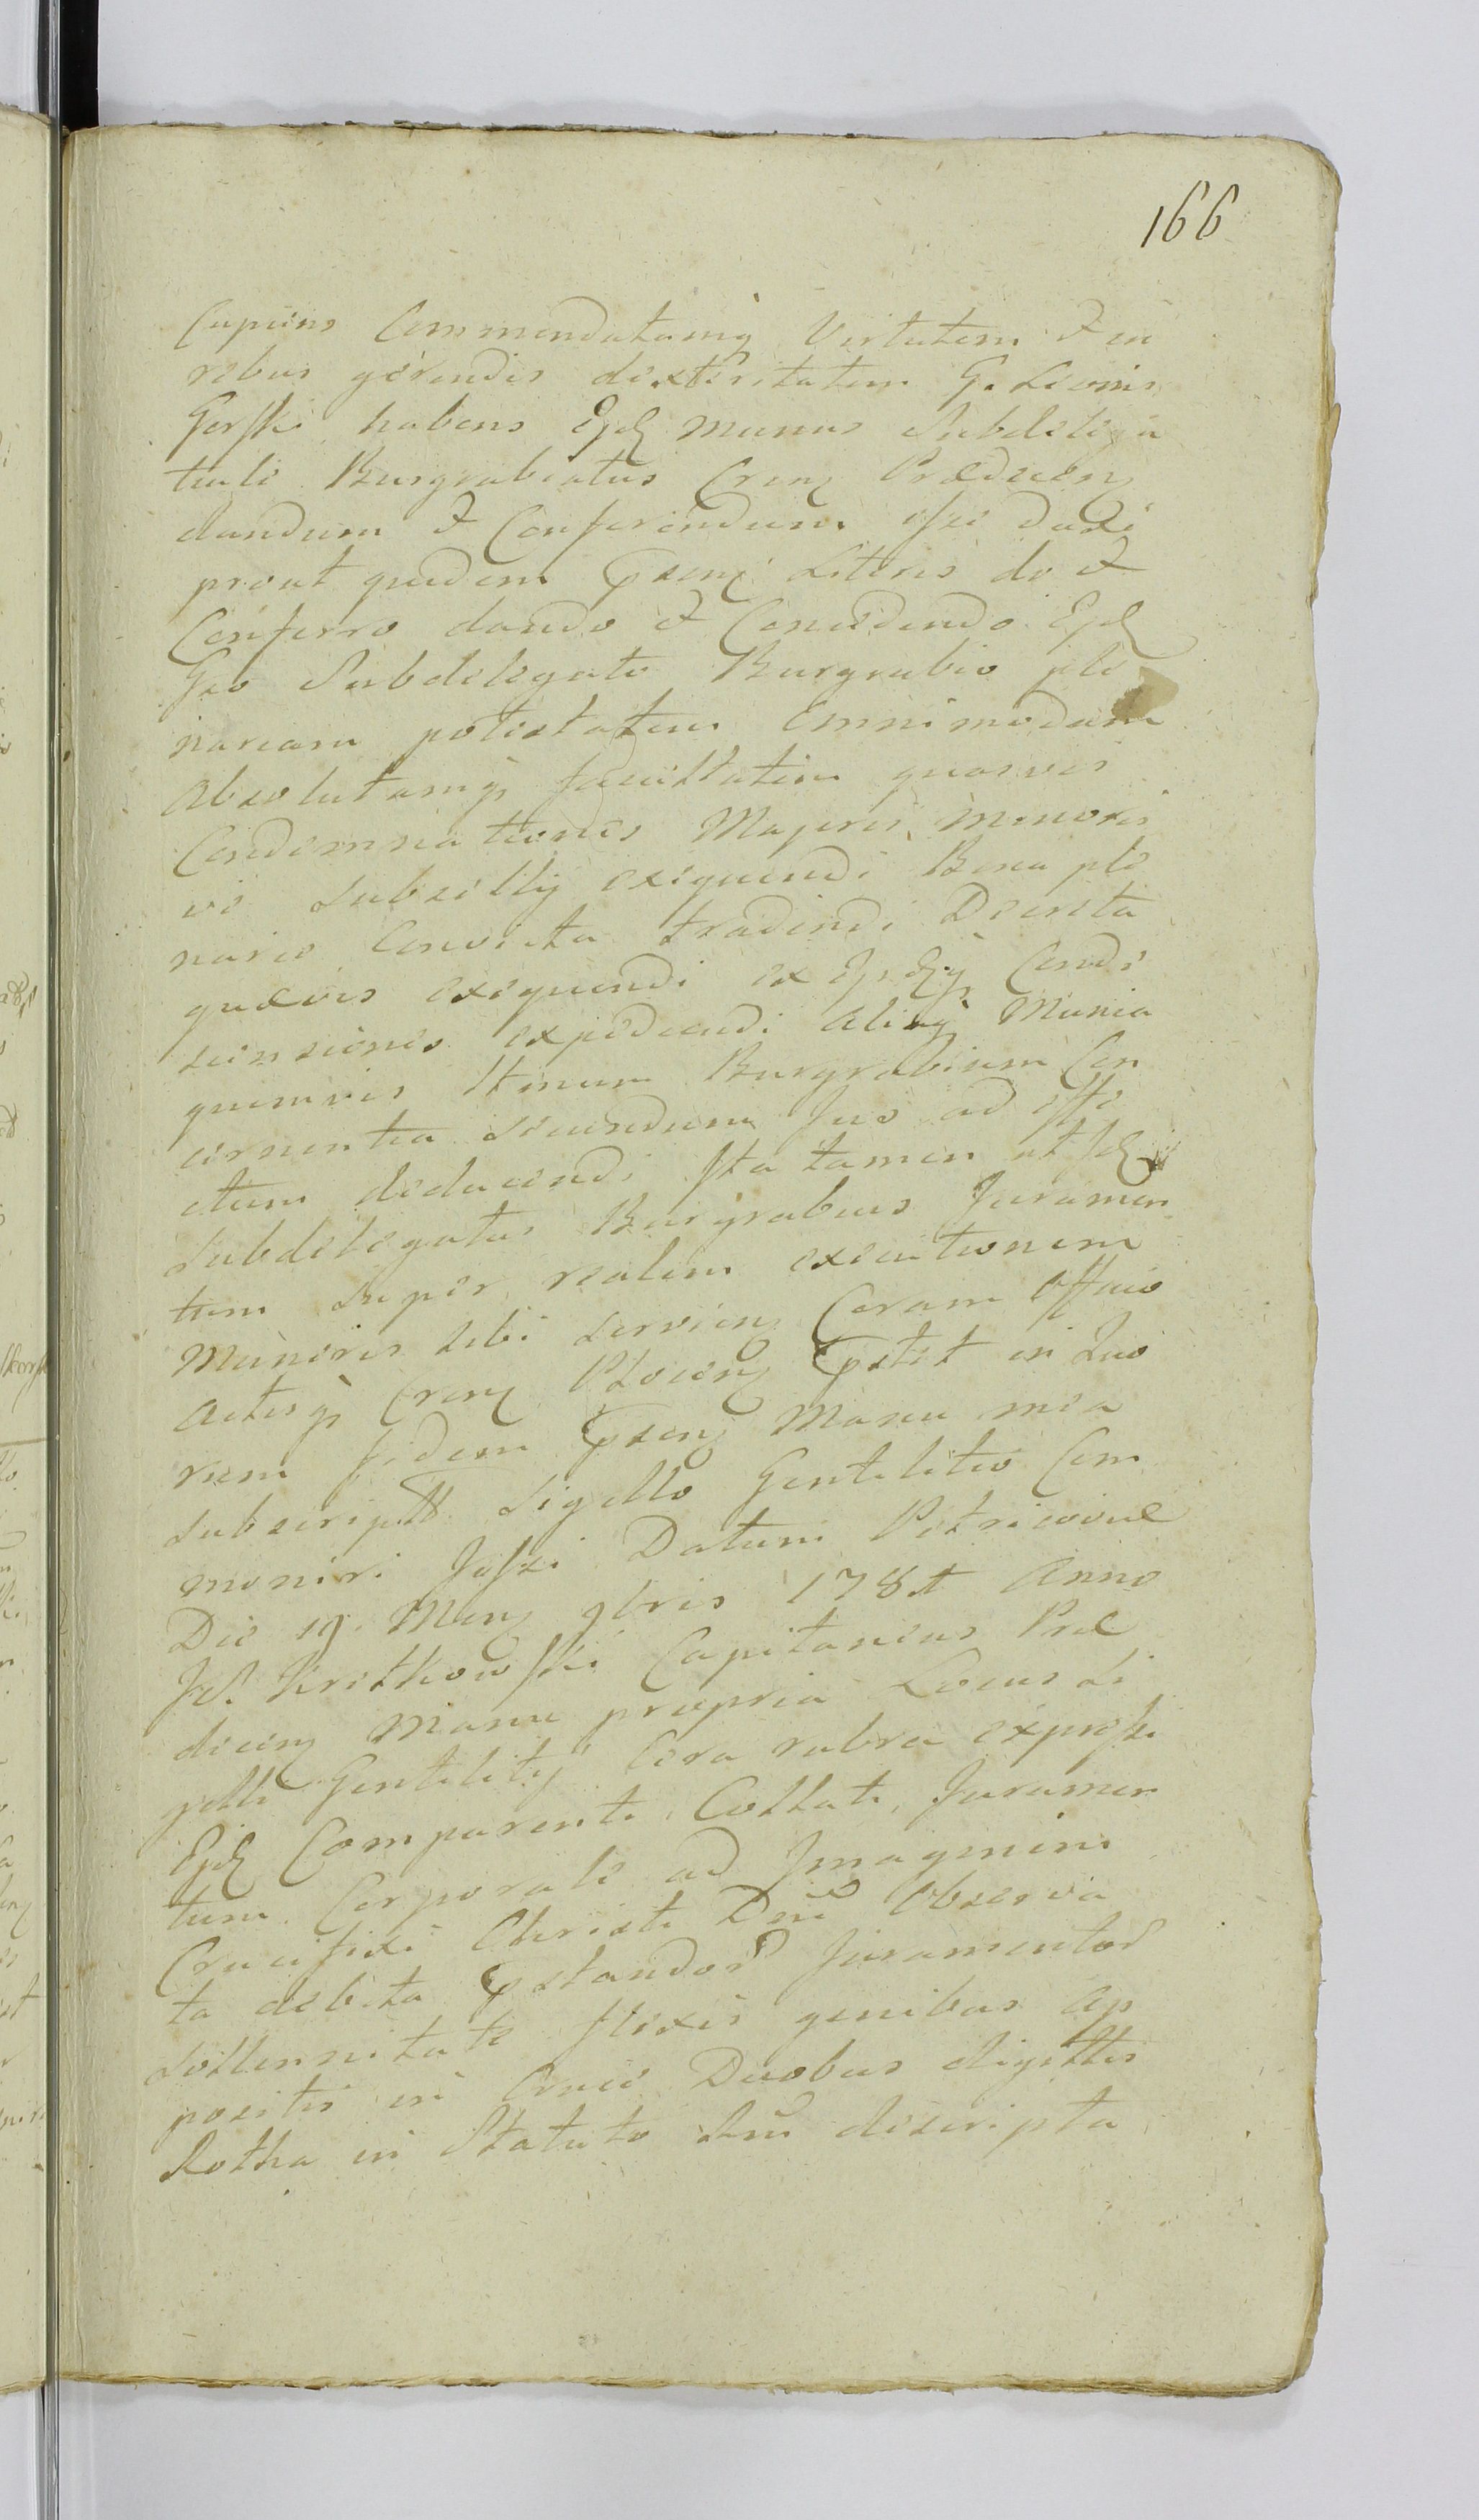 166
Cupiens Commendatamq Virtutem & in
rebus gerendis dexteritatem G. Leonis
Gorski habens Ejd Munus Subdelega
tule Burgrabiatus Cren Prædecen
dandum & Conferendum esse duxi
prout quidem Psen Literis do &
Confero dando & Concedendo Ejd
Gso Subdelegato Burgrabio ple
nariam potestatem Omnimodam
Absolutamq facultatem quasvis
Condemnationes Majoris, minoris
ve Subsellij exequendi Bona ple
narie Convicta tradendi Decreta
quævis exequendi ex Ejsdq Conde
scensiones expediendi Aliaq Munia
quemvis Itinum Burgrabium Con
cernentia secundum Jus ad effe
ctum deducendi Ita tamen ut Id
Subdelegatus Burgrabius Juramen
tum super realem executionem
Muneris sibi servien Coram Officio
Actisq Cren Plocen Pstet in Quo
rum fidem Psen Manu mea
subscriptt Sigillo Gentilitio Com
moniri Jussi Datum Petricoviæ
Die 19. Men 9bris 178 Anno
Kretkowski Capitaneus Præ
decen Manu propria Locus Si
gilli Gentilitij Cera rubra expressi
Ejd Comparenti, Collati, Juramen
tum Corporale ad Imaginem
Crucifixi Christi Dni Observa
ta debita Pstandor Juramentor
sollennitate flexis genibus Ap
positis in Cruce Duobus digittis
Rotha in Statuto descripta